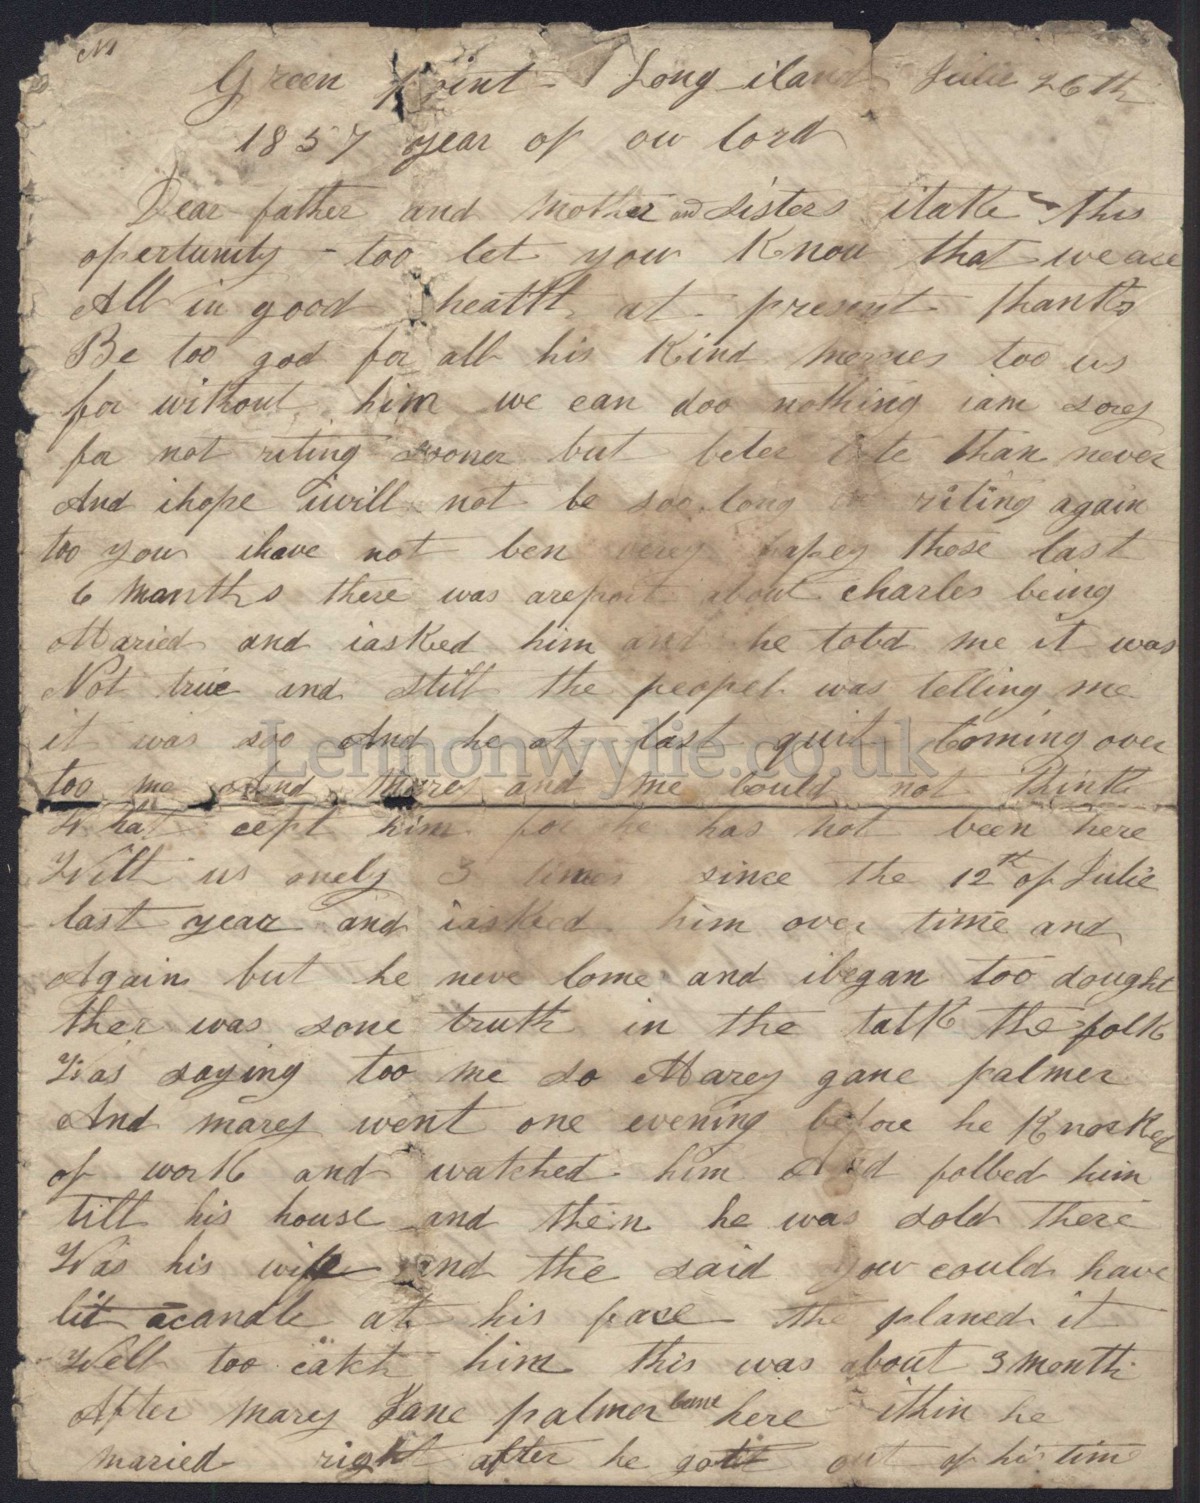 Green point - Long iland Julie 26th
1857 year of ow lord
Dear father and Mother and Sisters itake this
opertunity - too let you Know that we are
All in good healtt at present thanks
Be too god for all his Kind mercies too us
for without him we can doo nothing iam sorey
for not riting sooner but beter late than never
And ihope iwill not be soo long riting again
too you ihave not ben verey hapey those last
6 months there was areport about charles being
Maried and iasked him and he told me it was
Not true and still the peopel was telling me
it was soo And he at last quit Coming over
too me And Marey and me Could not think
What cept him for he has not been here
With us onely 3 times since the 12th of Julie
last year and iasked him over time and
Again but he neve Come and ibegan too dought
ther was some truth in the talk the folk
Was saying too me so Marey gane palmer
And marey went one evening before he Knocked
of work and watched him And folled him
till his house and then he was sold there
Was his wife and the said you could have
lit acandle at his face the planed it
Well too catch him this was about 3 month
After marey Jane palmer Came here ithin he
maried right after he gott out of his time
Lennonwylie.co.uk